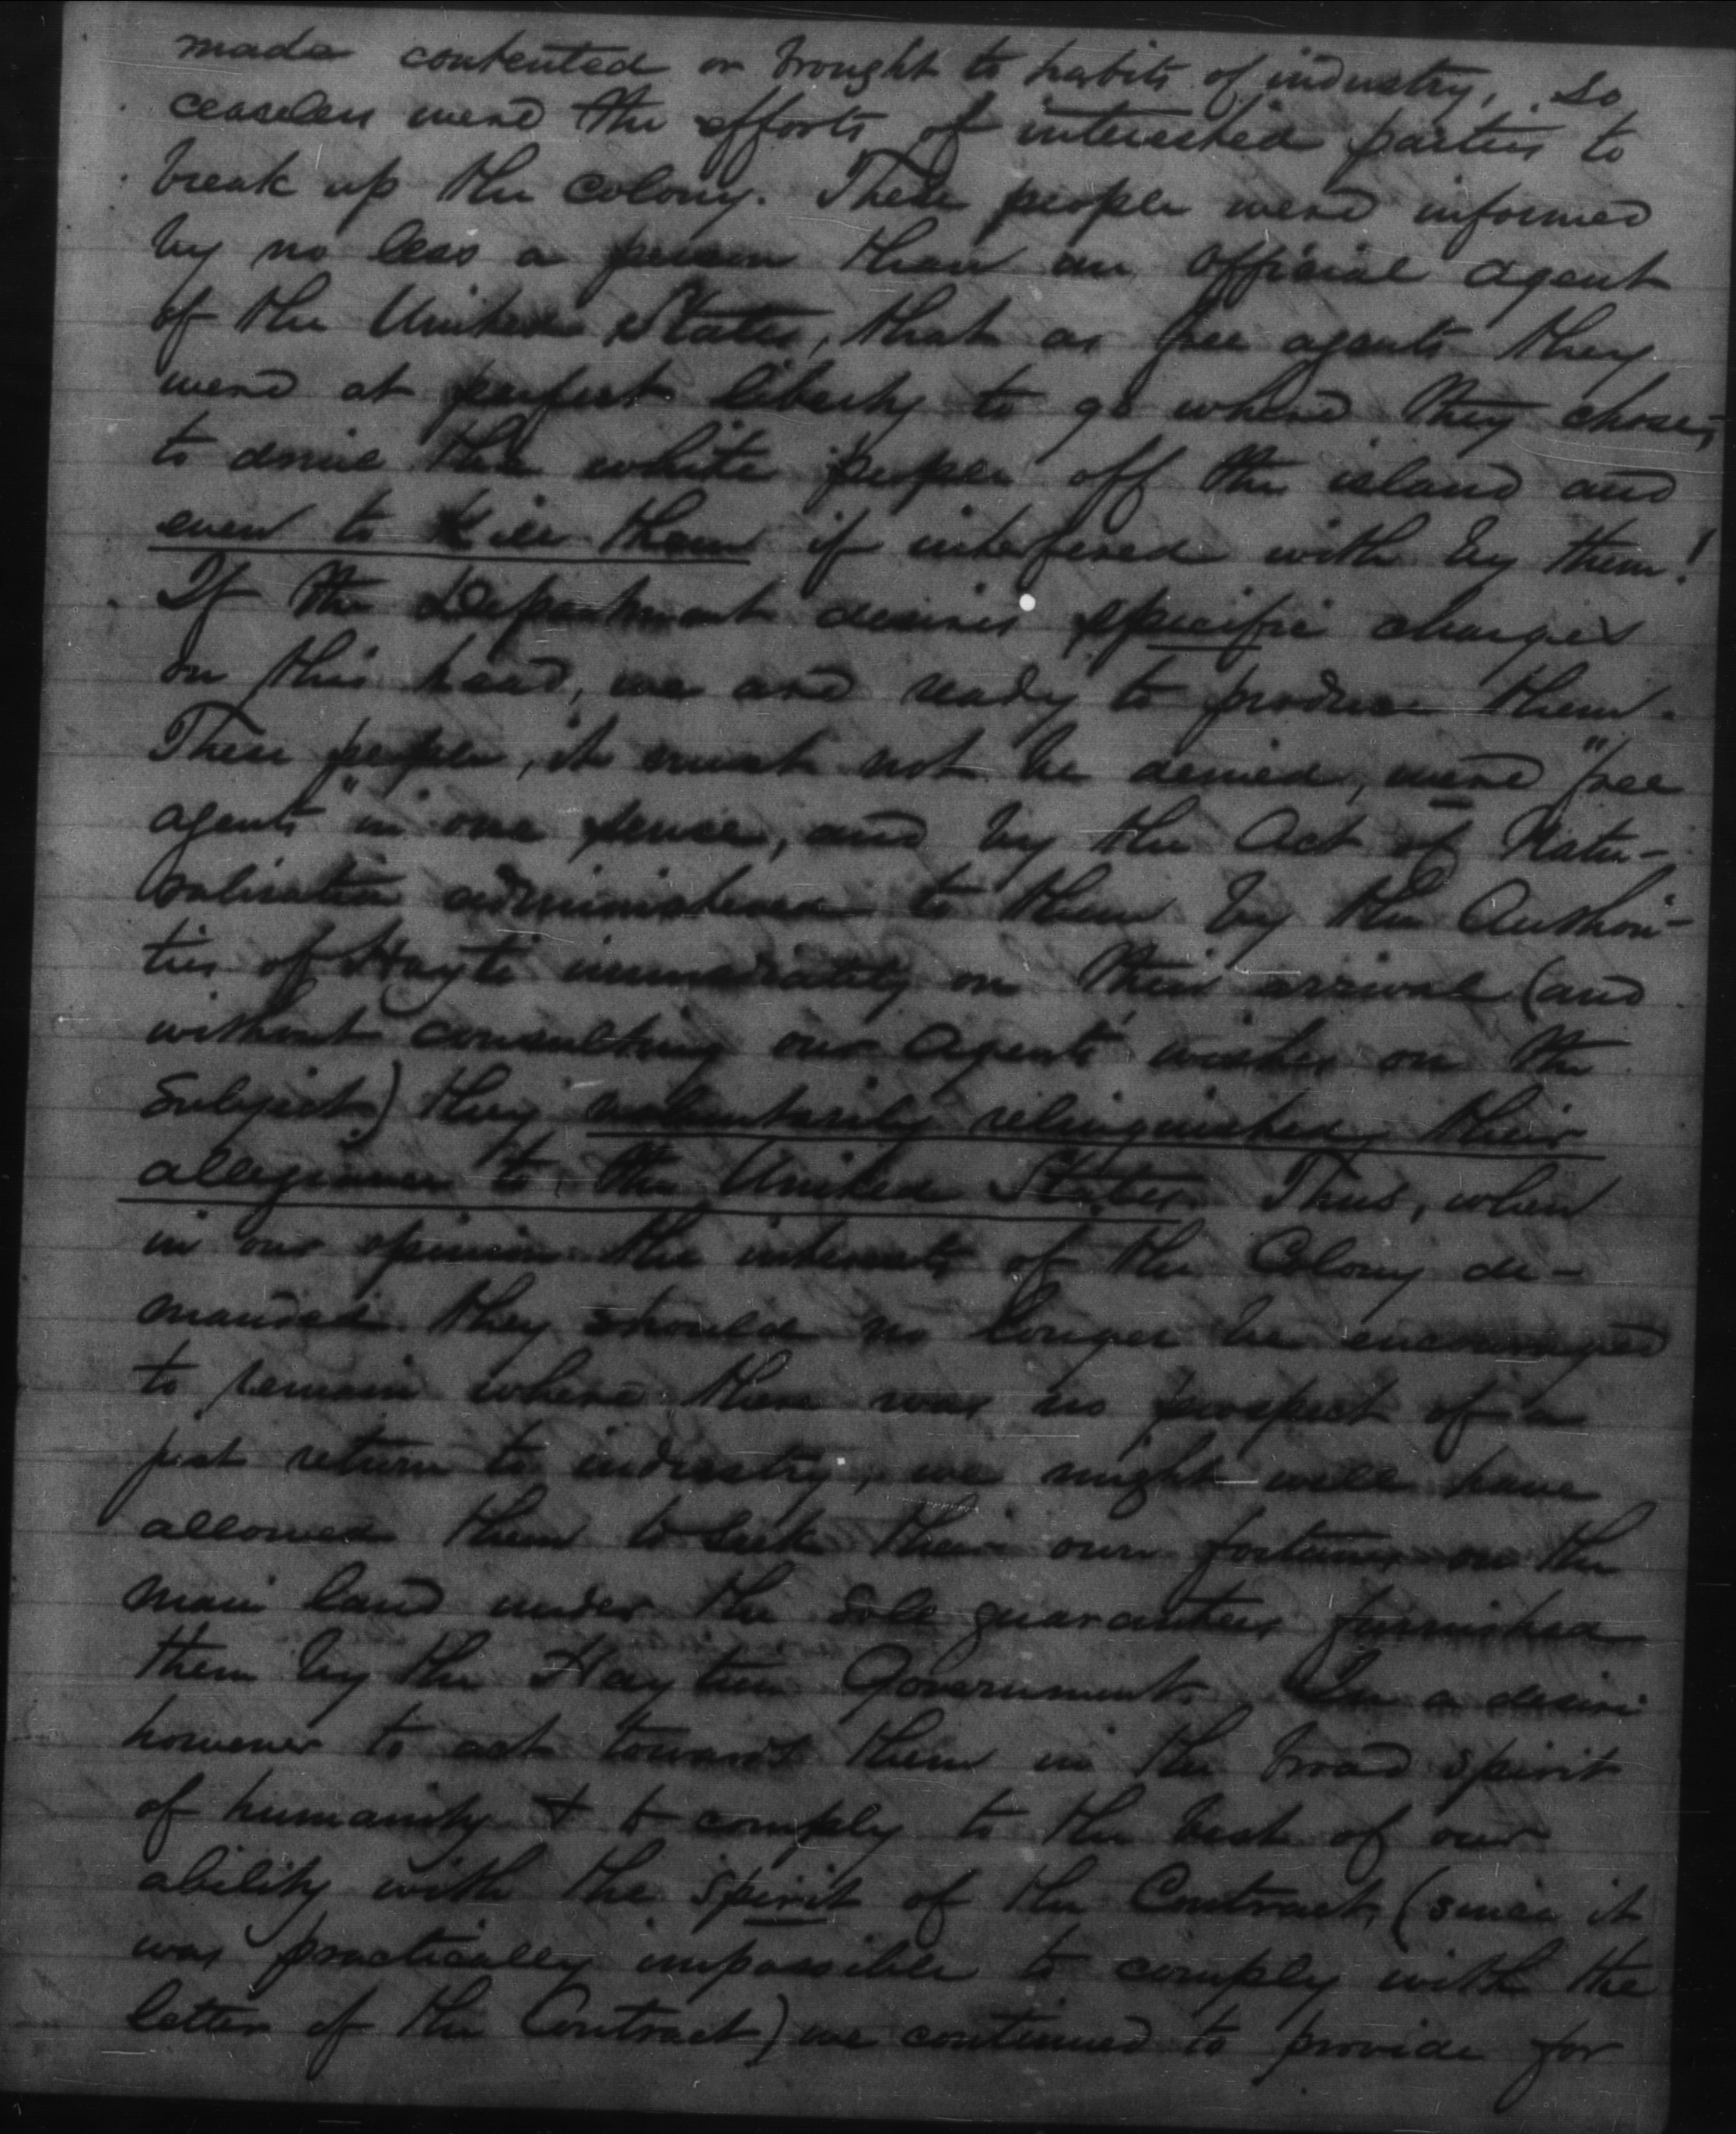 made contented or brought to habits of industry, so
ceaseless were the efforts of interested parties to
break up the colony. These people were informed
by no less a person than an official agent
of the United States, that as free agents they
were at perfect liberty to go where they chose,
to drive the white people off the island and
even to kill them if interfered with by them!
If the Department desires specific charges
on this head, we are ready to produce them.
These people, it must not be denied, were "free
agents" in one sense, and by the Act of Natu-
ralization administered to them by the Authori-
ties of Hayti immediately on their arrival (and
without consulting our agents' wishes on the
subject) they voluntarily relinquished their
allegiance to the United States. Thus, when
in our opinion the interests of the Colony de-
manded they should no longer be encouraged
to remain where there was no prospect of a
just return to industry, we might well have
allowed them to seek their own fortunes on the
main land under the sole guarantees furnished
them by the Haytien Government. In a desire
however to act towards them in the broad spirit
of humanity & to comply to the best of our
ability with the spirit of the Contract, (since it
was practically impossible to comply with the
letter of the Contract) we continued to provide for